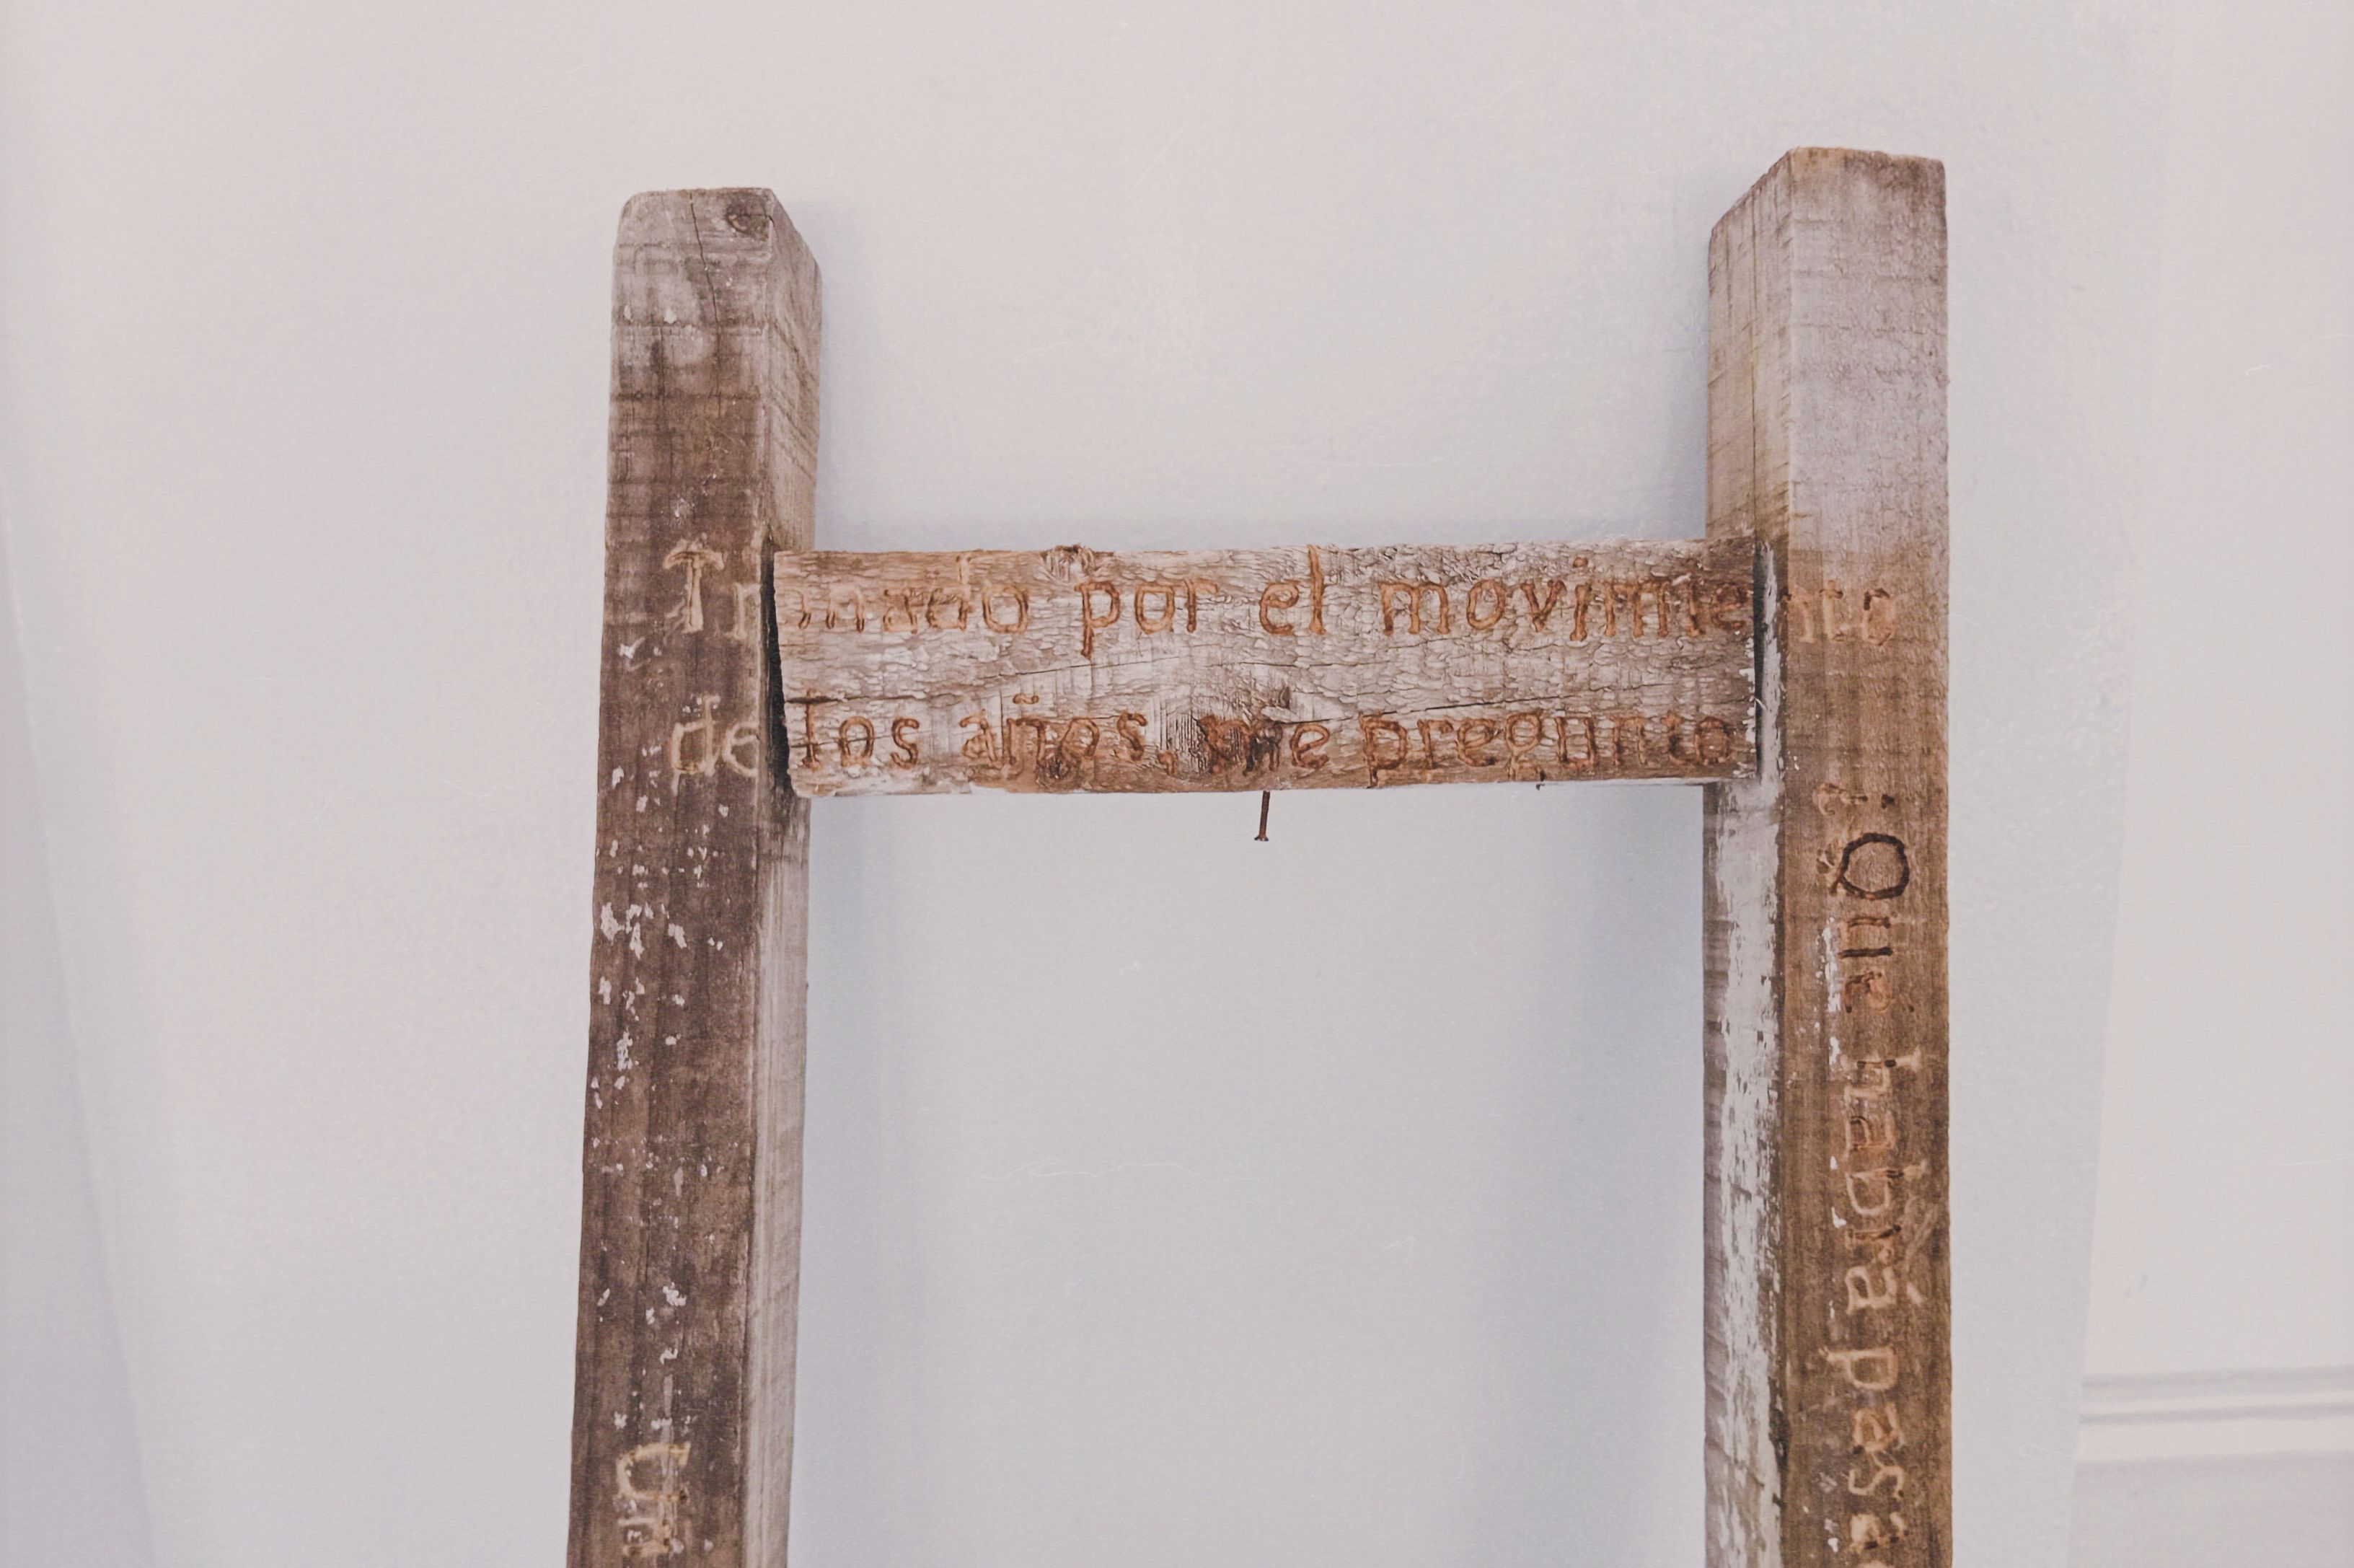 por el movimiento
de los años, me pregunto
¿Que habrá pasa
Un